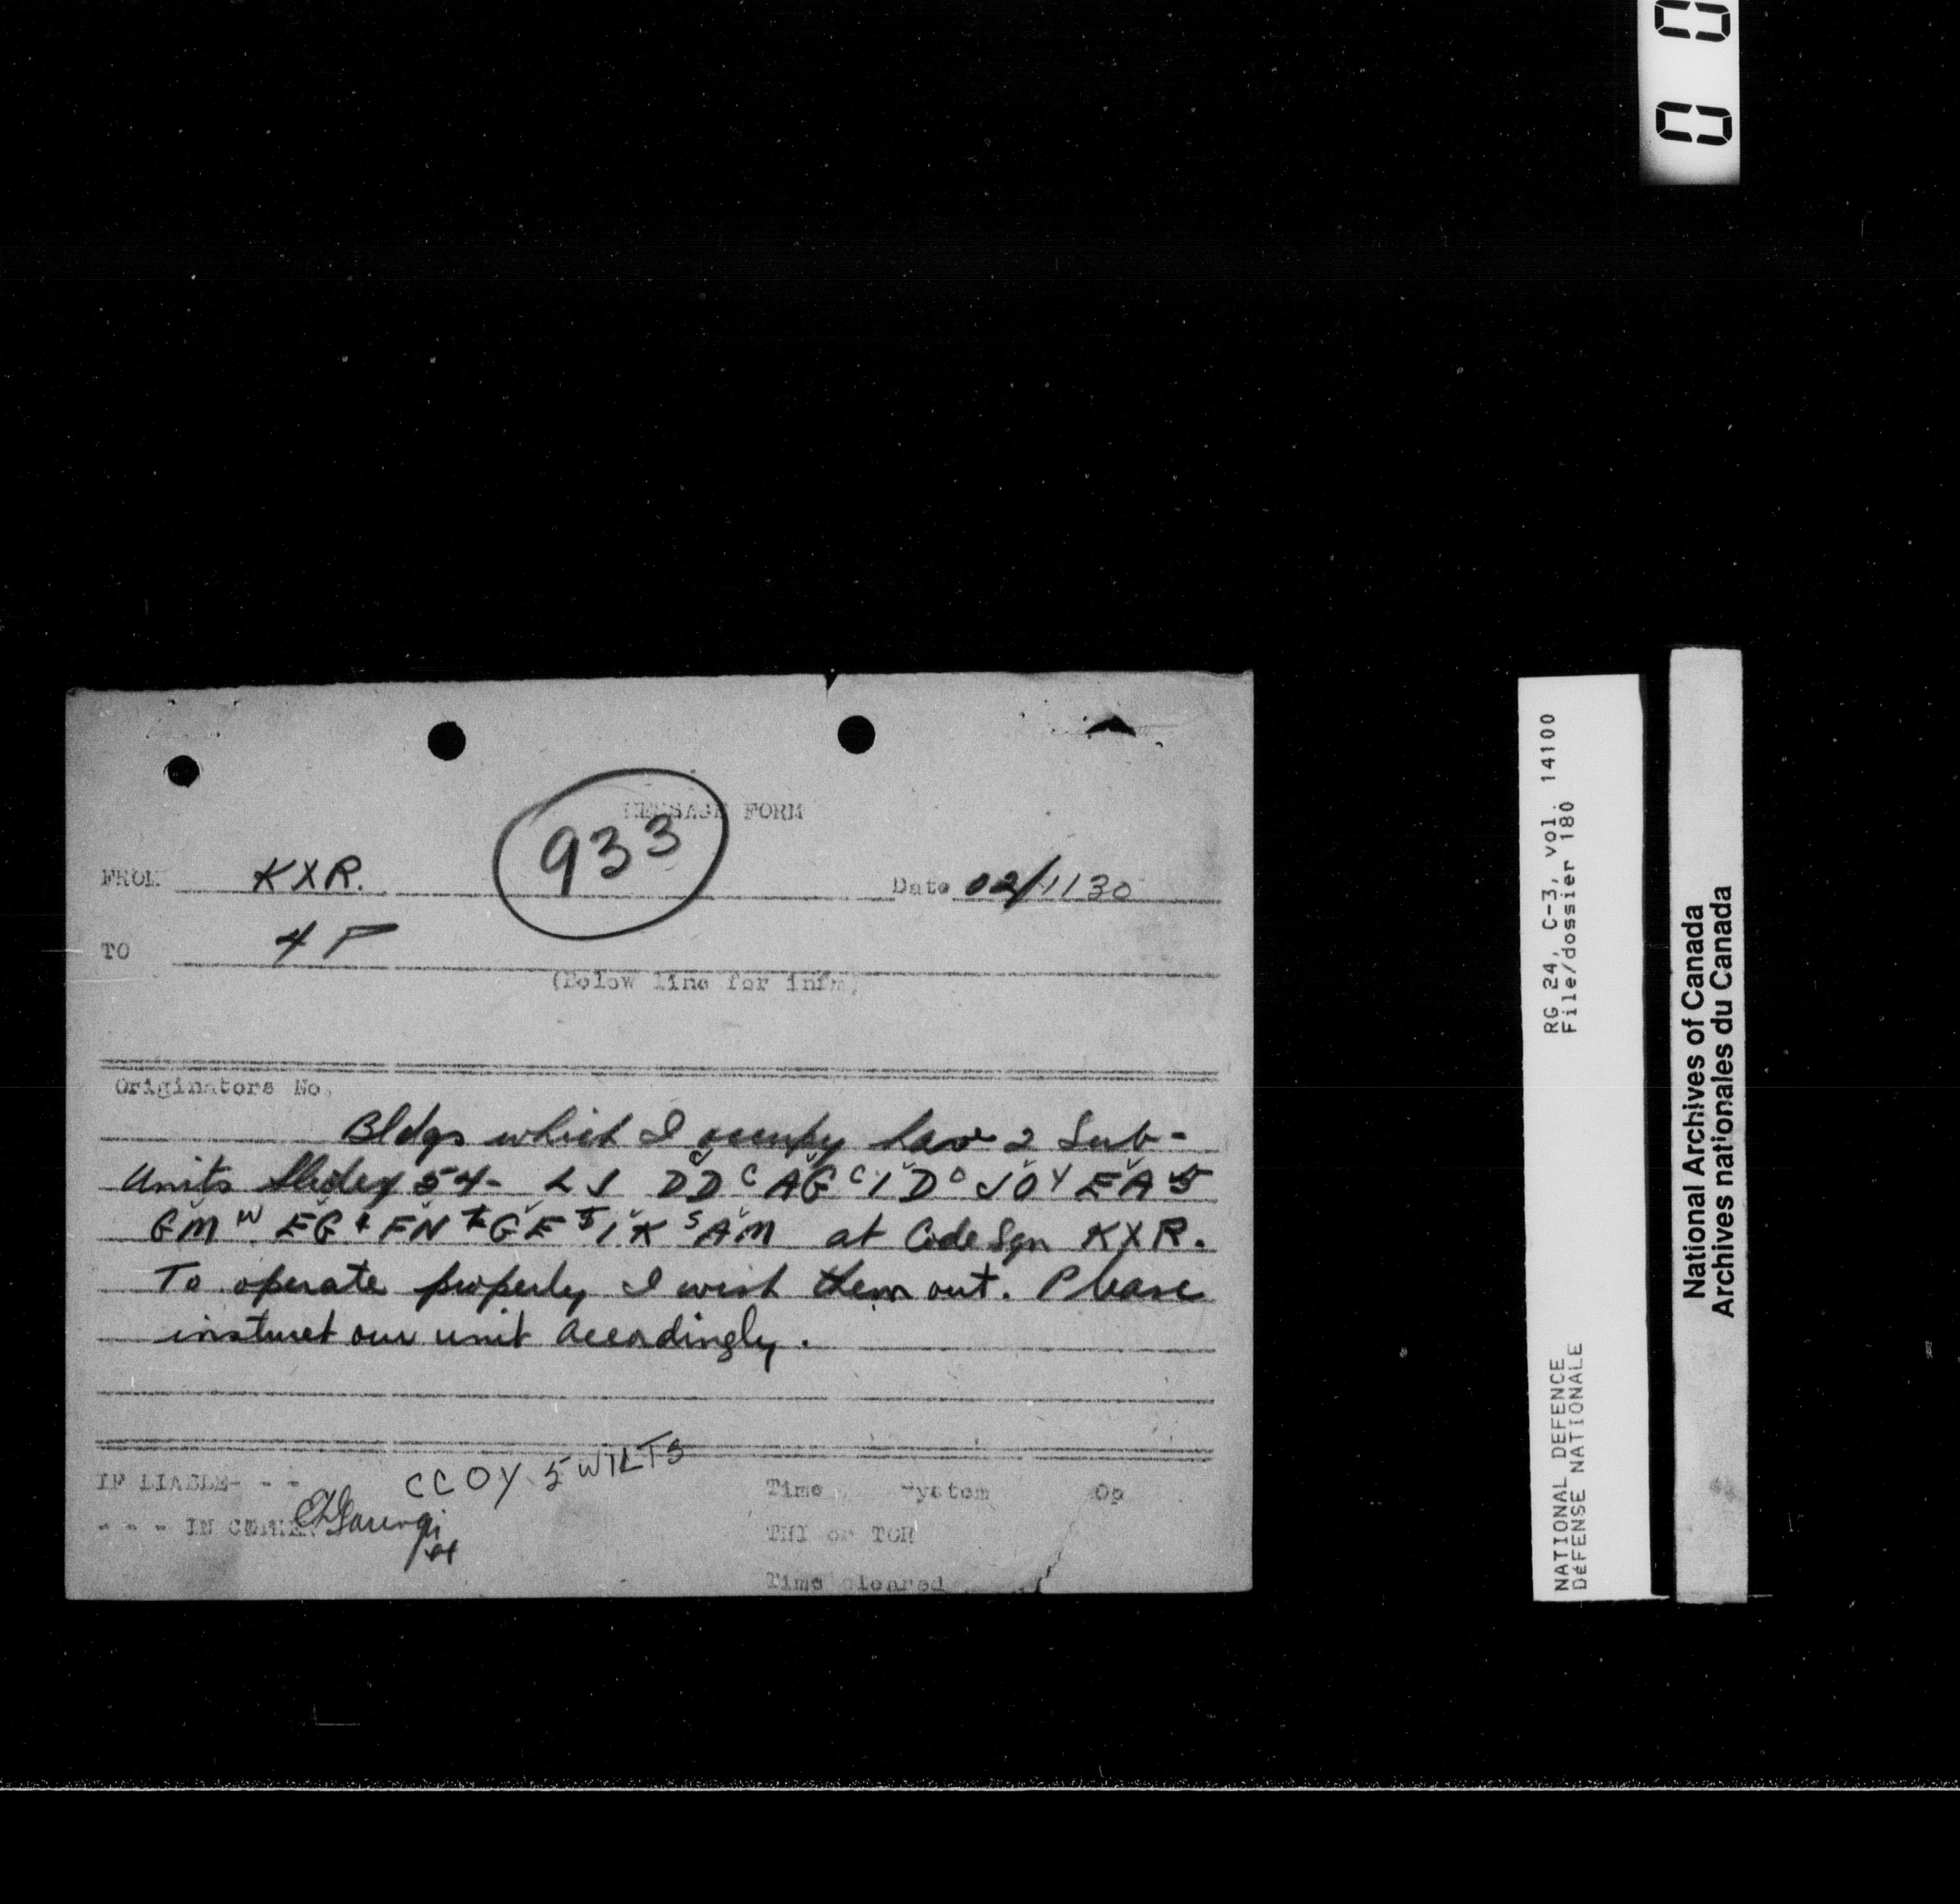 0 0
MESSAGE FORM
933
FROM KXR. Date 02/1130
TO 4
(Below line for infm)
Originators No.
Bldgs which I occupy have 2 Sub-
Units Slidex 54- LS DD C AG C ID O JO Y EA 5
GM W EG I FN L GE T IK S AM at Code Sgn KXR.
To operate properly I wish them out. Please
instruct our unit accordingly.
C COY 5 WILTS
IF LIABLE- - - Time System Op
- - - IN CIPHER THI or TOR
Time cleared
RG 24, C-3, vol. 14100
File/dossier 180
NATIONAL DEFENCE
DÉFENSE NATIONALE
National Archives of Canada
Archives nationales du Canada